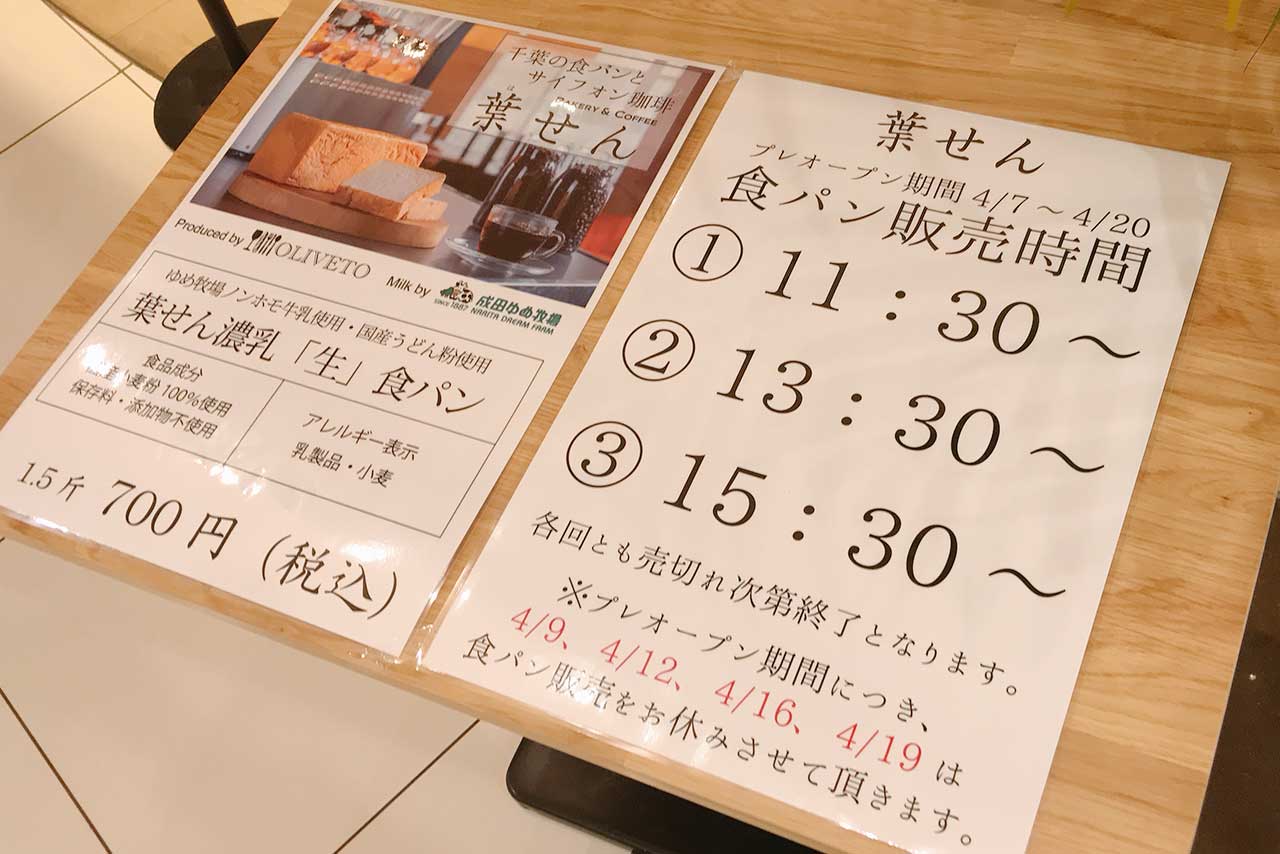 千葉の食パンと
サイフォン珈琲
BAKERY & COFFEE
は
葉せん
Produced by OLIVETO
Milk by 成田ゆめ牧場
SINCE 1887 NARITA DREAM FARM
ゆめ牧場ノンホモ牛乳使用・国産うどん粉使用
葉せん濃乳「生」食パン
食品成分
小麦粉100%使用
保存料・添加物不使用
アレルギー表示
乳製品・小麦
1.5斤 700円(税込)
葉せん
プレオープン期間 4/7～4/20
食パン販売時間
① 11：30～
② 13：30～
③ 15：30～
各回とも売切れ次第終了となります。
※プレオープン期間につき、
4/9、4/12、4/16、4/19は
食パン販売をお休みさせて頂きます。